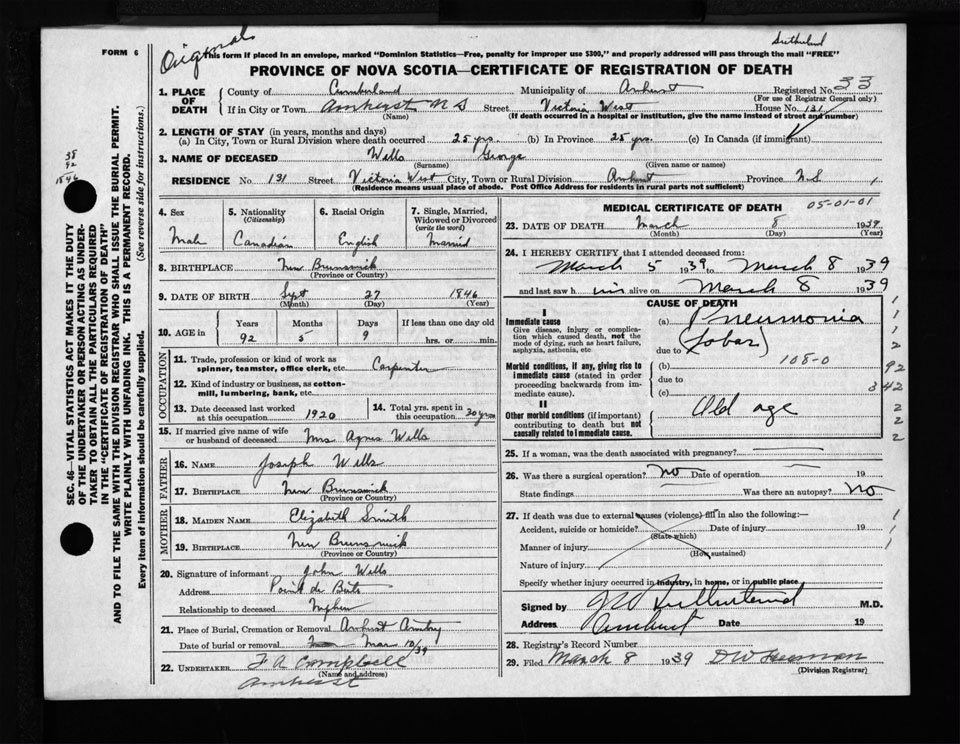 Originals
Sutherland
FORM 6
This form if placed in an envelope, marked "Dominion Statistics—Free, penalty for improper use $300," and properly addressed will pass through the mail "FREE"
PROVINCE OF NOVA SCOTIA—CERTIFICATE OF REGISTRATION OF DEATH
1. PLACE OF DEATH County of Cumberland Municipality of Amherst Registered No. 33
(For use of Registrar General only)
If in City or Town Amherst N S Street Victoria West House No. 131
(Name) (If death occurred in a hospital or institution, give the name instead of street and number)
2. LENGTH OF STAY (in years, months and days)
(a) In City, Town or Rural Division where death occurred 25 yrs. (b) In Province 25 yrs. (c) In Canada (if immigrant)
3. NAME OF DECEASED Wells George
(Surname) (Given name or names)
RESIDENCE No 131 Street Victoria West City, Town or Rural Division Amherst Province N.S
(Residence means usual place of abode. Post Office Address for residents in rural parts not sufficient)
38
92
1846
SEC. 46—VITAL STATISTICS ACT MAKES IT THE DUTY
OF THE UNDERTAKER OR PERSON ACTING AS UNDER-
TAKER TO OBTAIN ALL THE PARTICULARS REQUIRED
IN THE "CERTIFICATE OF REGISTRATION OF DEATH"
AND TO FILE THE SAME WITH THE DIVISION REGISTRAR WHO SHALL ISSUE THE BURIAL PERMIT.
WRITE PLAINLY WITH UNFADING INK. THIS IS A PERMANENT RECORD.
Every item of information should be carefully supplied. (See reverse side for instructions.)
4. Sex 5. Nationality (Citizenship) 6. Racial Origin 7. Single, Married, Widowed or Divorced (write the word)
Male Canadian English Married
8. BIRTHPLACE New Brunswick
(Province or Country)
9. DATE OF BIRTH Sept 27 1846
(Month) (Day) (Year)
10. AGE in Years Months Days If less than one day old
92 5 9 hrs. or min.
OCCUPATION
11. Trade, profession or kind of work as spinner, teamster, office clerk, etc. Carpenter
12. Kind of industry or business, as cotton-mill, lumbering, bank, etc.
13. Date deceased last worked at this occupation 1920 14. Total yrs. spent in this occupation 30 years
15. If married give name of wife or husband of deceased Mrs Agnes Wells
FATHER
16. NAME Joseph Wells
17. BIRTHPLACE New Brunswick
(Province or Country)
MOTHER
18. MAIDEN NAME Elizabeth Smith
19. BIRTHPLACE New Brunswick
(Province or Country)
20. Signature of informant John Wells
Address Point de Bute
Relationship to deceased Nephew
21. Place of Burial, Cremation or Removal Amherst
Date of burial or removal Mar 10/39
22. UNDERTAKER F A Campbell
(Name and address)
Amherst
MEDICAL CERTIFICATE OF DEATH
05-01-01
23. DATE OF DEATH March 8 1939
(Month) (Day) (Year)
24. I HEREBY CERTIFY that I attended deceased from:
March 5 1939 to March 8 1939
and last saw him alive on March 8 1939
CAUSE OF DEATH
I
Immediate cause
Give disease, injury or complica-
tion which caused death, not the
mode of dying, such as heart failure,
asphyxia, asthenia, etc
(a) Pneumonia
due to (Lobar)
Morbid conditions, if any, giving rise to
immediate cause (stated in order
proceeding backwards from im-
mediate cause).
(b) 108-0
due to
(c)
II
Other morbid conditions (if important)
contributing to death but not
causally related to immediate cause.
Old age
1
1
1
2
92
342
2
2
2
25. If a woman, was the death associated with pregnancy?
26. Was there a surgical operation? No Date of operation 19
State findings Was there an autopsy? No
27. If death was due to external causes (violence) fill in also the following:—
Accident, suicide or homicide? Date of injury 19
(State which)
Manner of injury
(How sustained)
Nature of injury
Specify whether injury occurred in industry, in home, or in public place
Signed by J W Sutherland M.D.
Address Amherst Date 19
28. Registrar's Record Number
29. Filed March 8 1939
(Division Registrar)